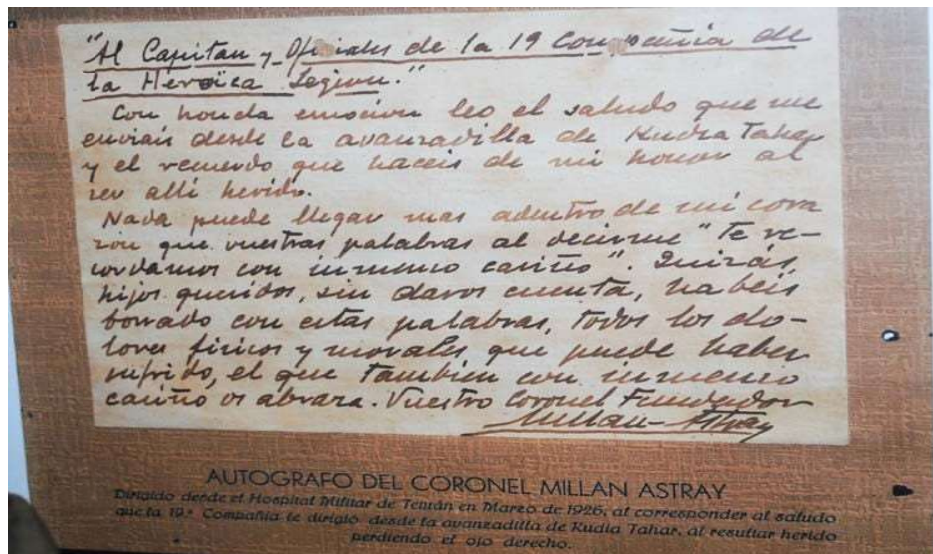 "Al Capitan y Oficiales de la 19 Compañia de
la Heroica Legion."
Con honda emocion leo el saludo que me
enviais desde la avanzadilla de Kudia Tahar
y el recuerdo que haceis de mi honor al
ser alli herido.
Nada puede llegar mas adentro de mi cora
zon que vuestras palabras al decirme "Te re-
cordamos con inmenso cariño". Quizás,
hijos queridos, sin daros cuenta, habéis
borrado con estas palabras, todos los do-
lores fisicos y morales, que puede haber
sufrido, el que tambien con inmenso
cariño os abraza. Vuestro Coronel Fundador
Millan-Astray
AUTOGRAFO DEL CORONEL MILLAN ASTRAY
Dirigido desde el Hospital Militar de Tetuán en Marzo de 1926, al corresponder al saludo
que la 19.ª Compañia le dirigió desde la avanzadilla de Kudia Tahar, al resultar herido
perdiendo el ojo derecho.